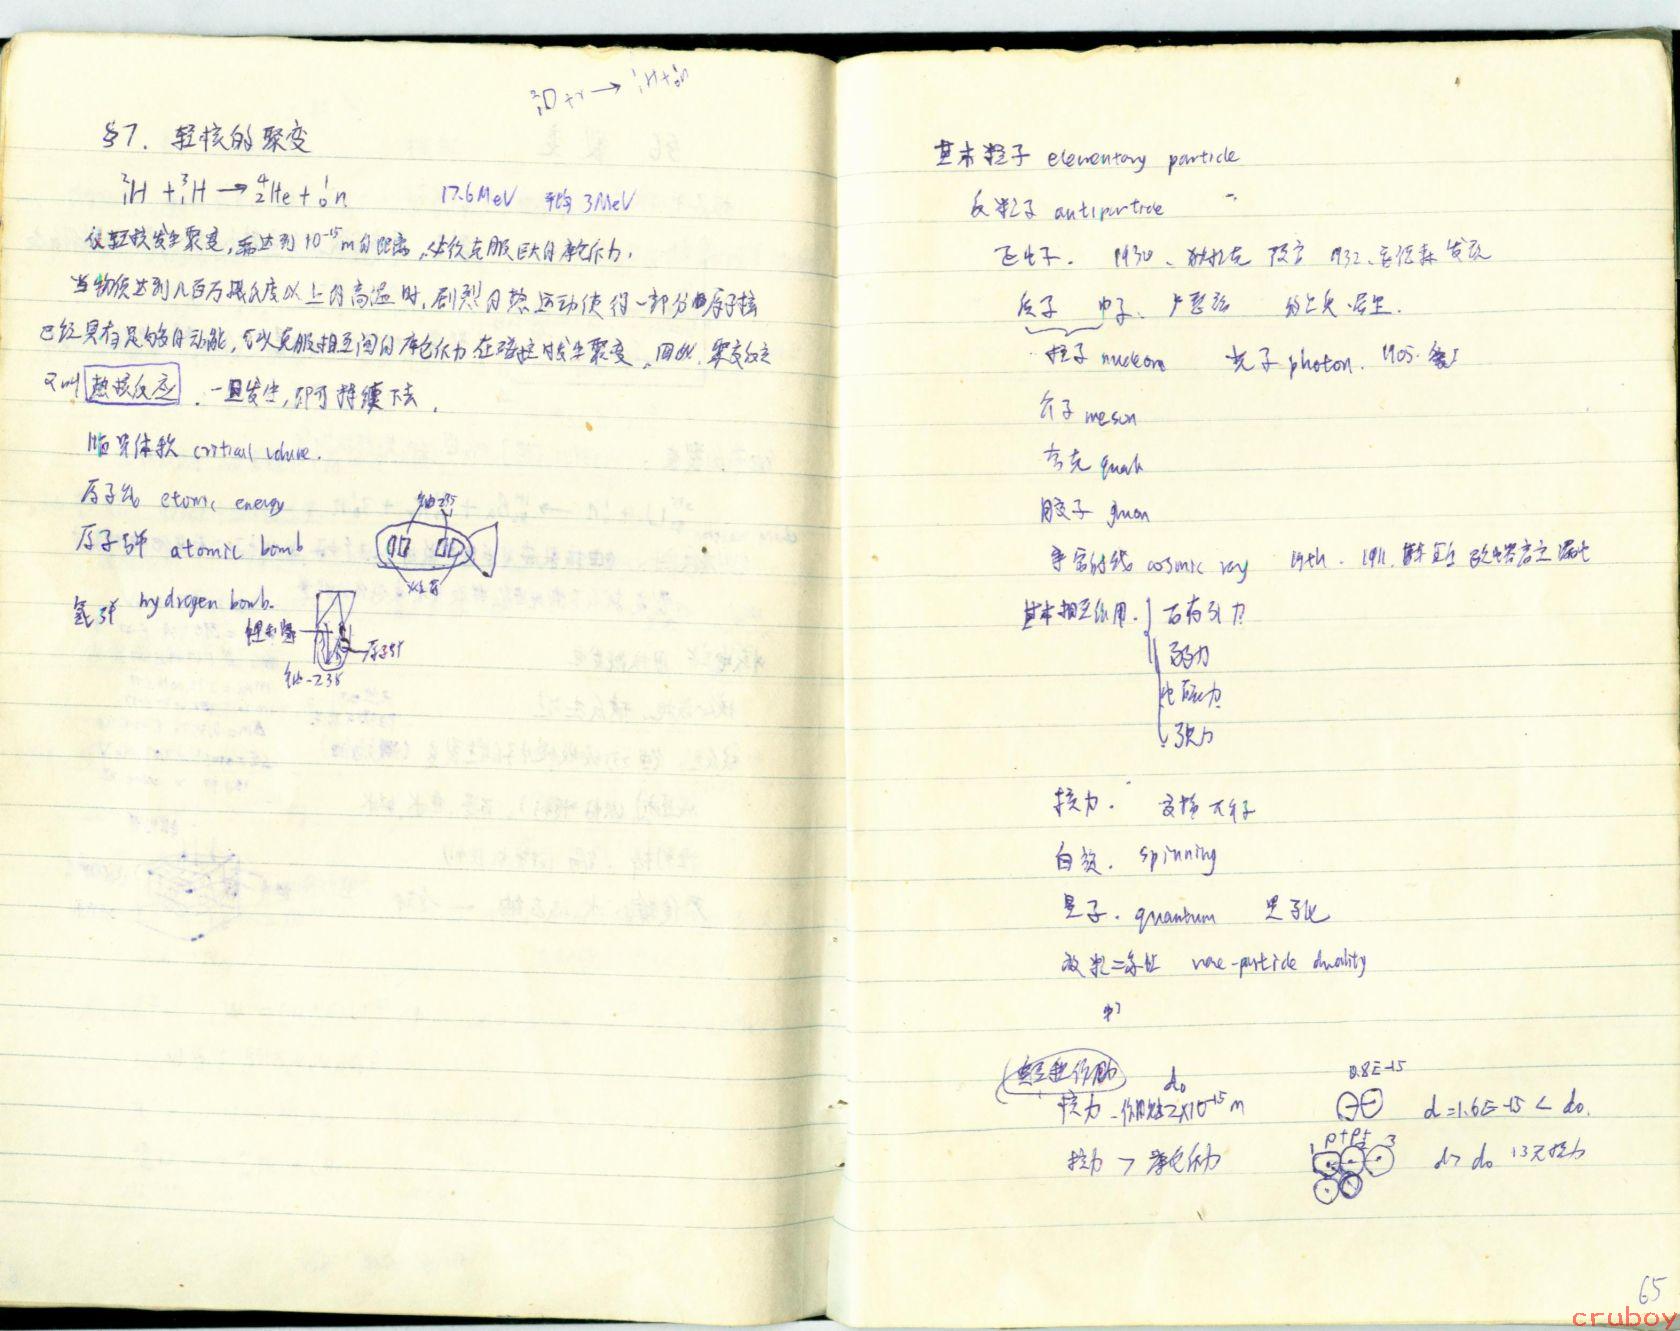 ²₁D + γ → ¹₁H + ¹₀n
§7. 轻核的聚变
²₁H + ³₁H → ⁴₂He + ¹₀n 17.6MeV 平均 3MeV
使轻核发生聚变,需达到10⁻¹⁵m的距离,必须克服巨大的库仑斥力.
当物质达到几百万摄氏度以上的高温时,剧烈的热运动使得一部分原子核
已经具有足够的动能,可以克服相互间的库仑斥力在碰撞时发生聚变.因此,聚变反应
又叫热核反应.一旦发生,即可持续下去.
临界体积 critical volume.
原子能 etomic energy
铀235
原子弹 atomic bomb
火药
氢弹 hydrogen bomb.
原子弹
铀-235
基本粒子 elementary particle
反粒子 antiparticle
正电子. 1930、狄拉克 预言 1932、安德森 发现
质子 中子、卢瑟福
核子 nucleons 光子 photon. 1905.
介子 meson
夸克 quark
胶子 gluon
宇宙射线 cosmic ray 19th. 1911.
基本相互作用. 万有引力
弱力
电磁力
强力
核力. 交换介子
自旋. spinning
量子. quantum 量子化
波粒二象性 wave-particle duality
d₀ 0.8E-15
核力 - 作用距2×10⁻¹⁵m d=1.6E-15 < d₀.
P+P+ 3
1
核力 > 库仑斥力 d> d₀ 13无核力
65
cruboy